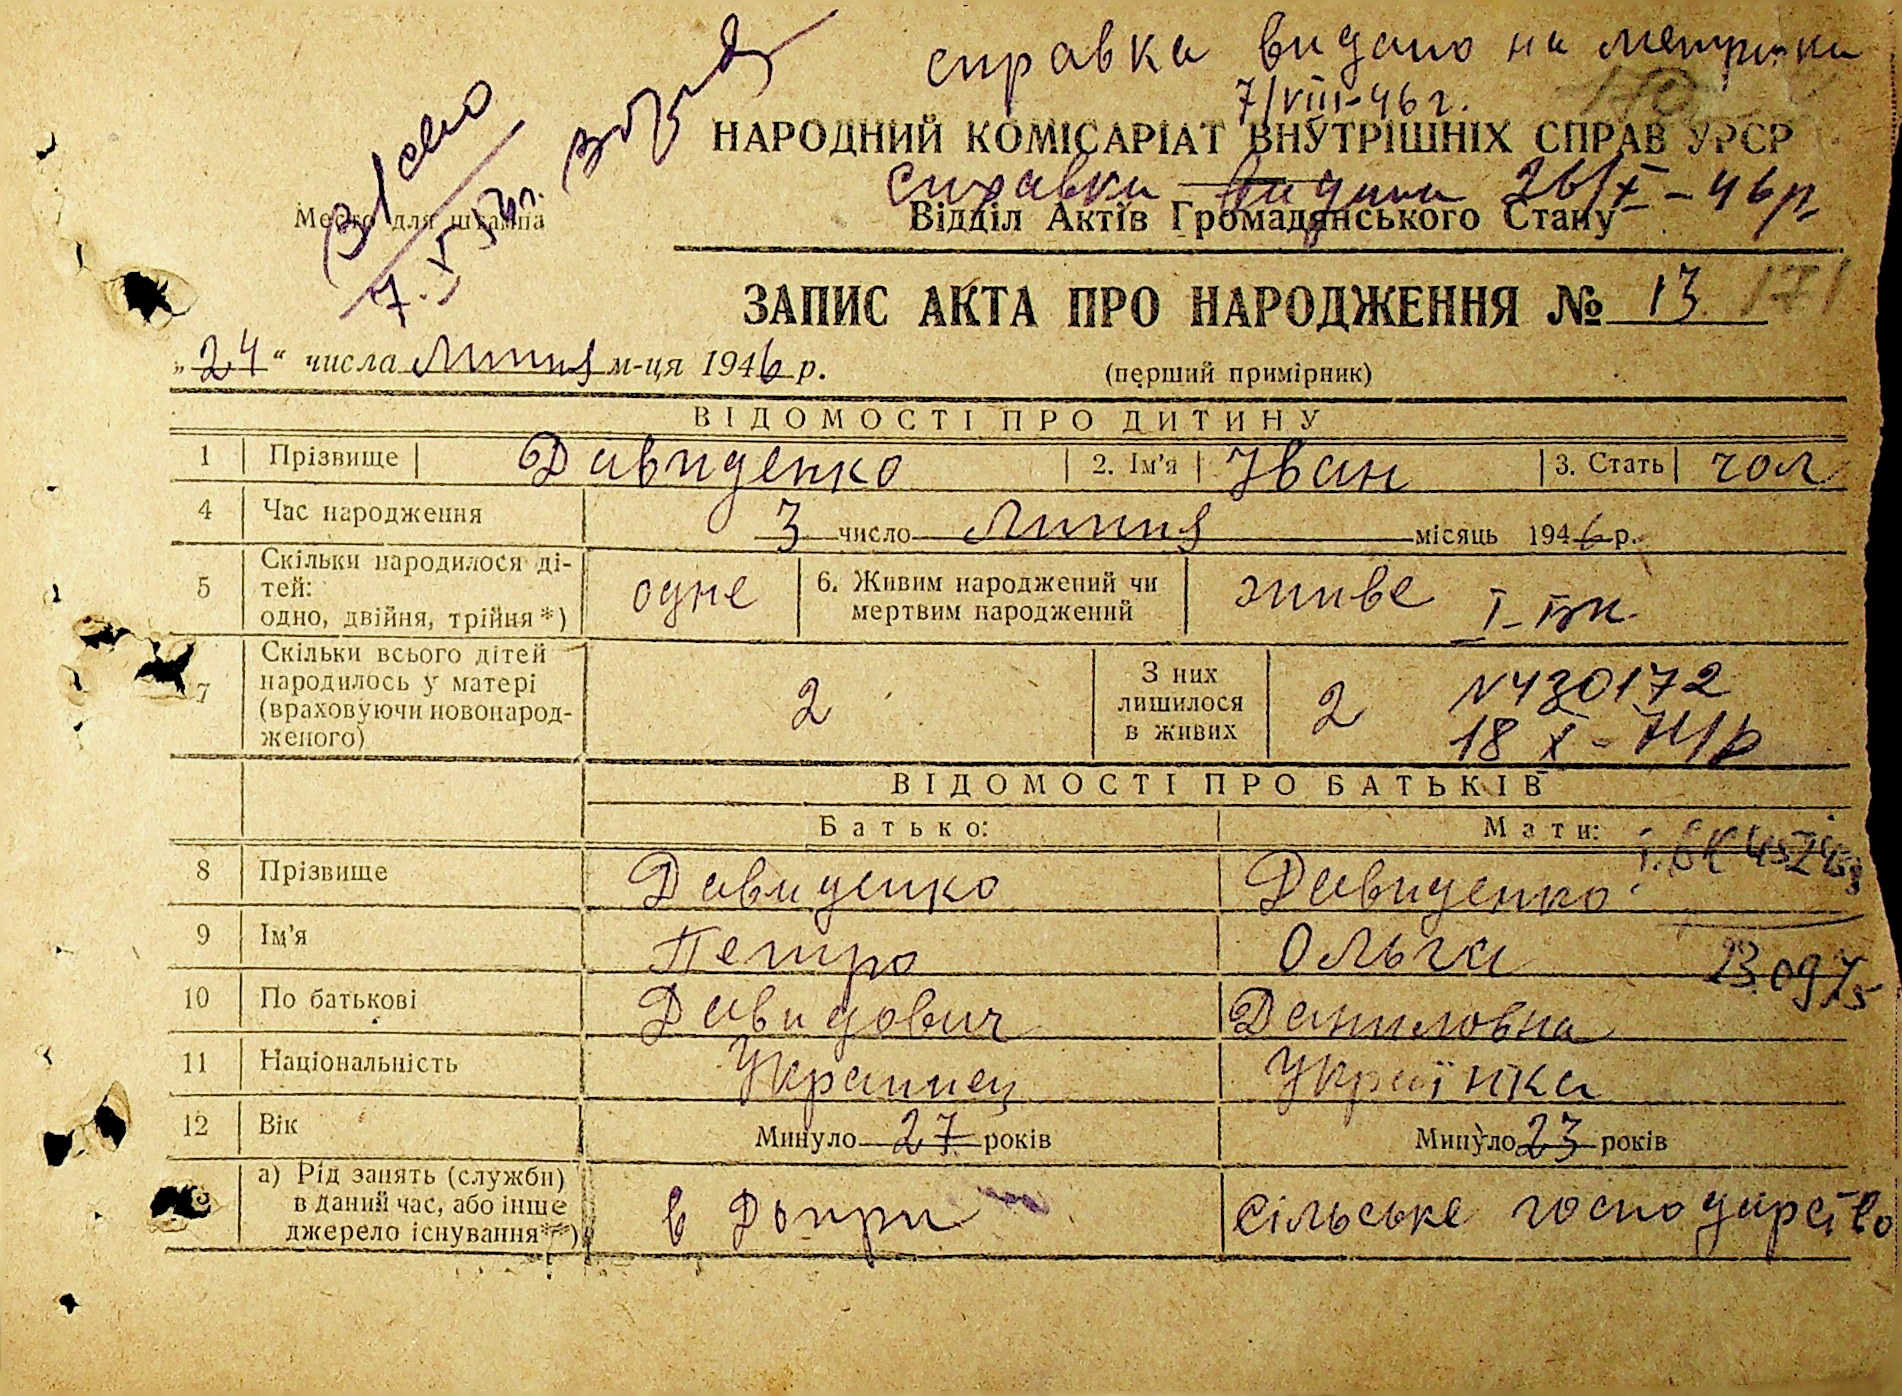 справка видано на метрики
7/VIII-46 г.
170
НАРОДНИЙ КОМІСАРІАТ ВНУТРІШНІХ СПРАВ УРСР
Справка видана 26/X-46 р
Место для штампа
Відділ Актів Громадянського Стану
ЗАПИС АКТА ПРО НАРОДЖЕННЯ № 13 171
„24“ числа Липня м-ця 1946 р.
(перший примірник)
ВІДОМОСТІ ПРО ДИТИНУ
1 Прізвище Давиденко 2. Ім'я Іван 3. Стать чол
4 Час народження 3 число Липня місяць 1946 р.
5 Скільки народилося ді-
тей:
одно, двійня, трійня*) одне 6. Живим народжений чи
мертвим народжений живе
7 Скільки всього дітей
народилось у матері
(враховуючи новонарод-
женого) 2 З них
лишилося
в живих 2
N430172
18 X-74 р
ВІДОМОСТІ ПРО БАТЬКІВ
Батько: Мати:
8 Прізвище Давиденко Давиденко
9 Ім'я Петро Ольга
23.09.75
10 По батькові Давидович Даниловна
11 Національність Украинец Українка
12 Вік Минуло 27 років Минуло 23 років
а) Рід занять (служби)
в даний час, або інше
джерело існування**) в Допри сільське господарство